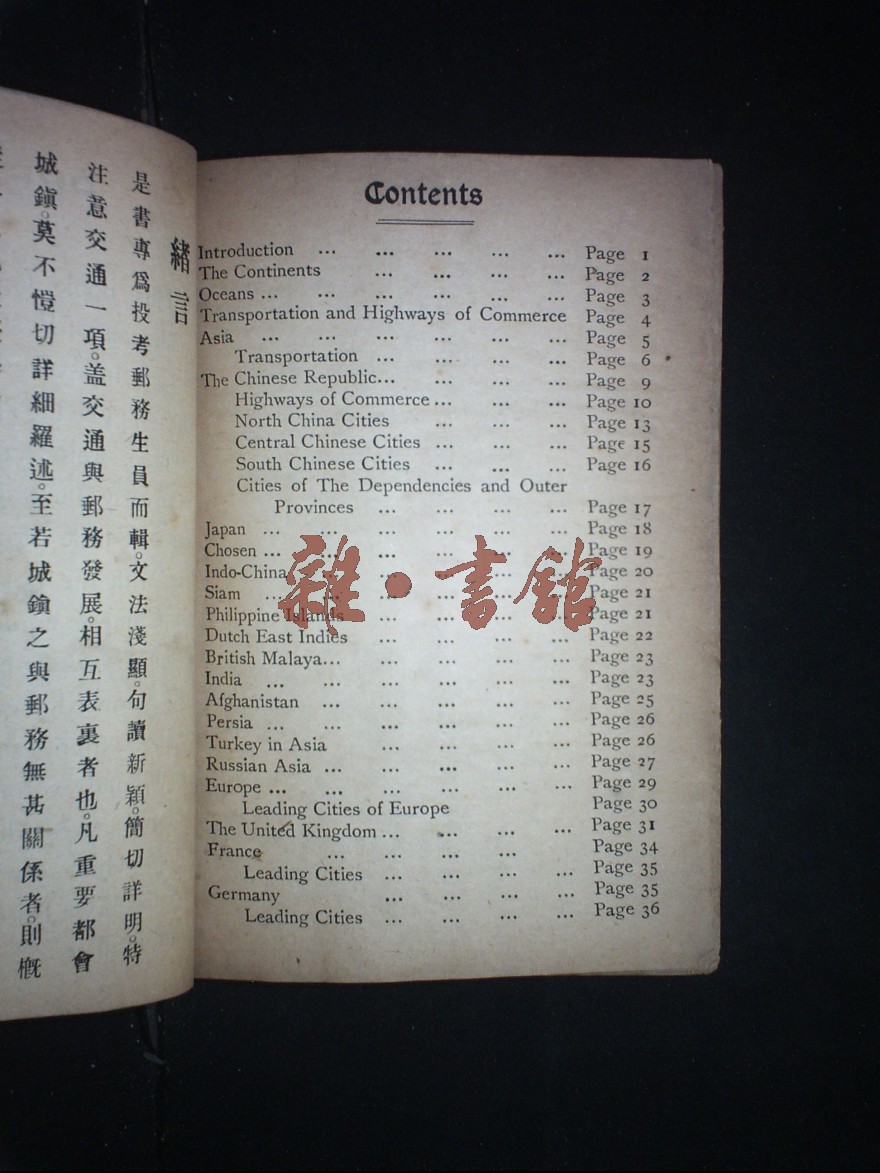 緒言
是書專爲投考郵務生員而輯。文法淺顯。句讀新穎。簡切詳明。特
注意交通一項。盖交通與郵務發展。相互表裏者也。凡重要都會
城鎭。莫不愷切詳細羅述。至若城鎭之與郵務無甚關係者。則概
Contents
Introduction ... ... ... ... ... Page 1
The Continents ... ... ... ... Page 2
Oceans ... ... ... ... ... ... Page 3
Transportation and Highways of Commerce Page 4
Asia ... ... ... ... ... ... Page 5
Transportation ... ... ... ... Page 6
The Chinese Republic... ... ... ... Page 9
Highways of Commerce ... ... ... ... Page 10
North China Cities ... ... ... Page 13
Central Chinese Cities ... ... ... Page 15
South Chinese Cities ... ... ... Page 16
Cities of The Dependencies and Outer
Provinces ... ... ... ... Page 17
Japan ... ... ... ... ... ... Page 18
Chosen ... ... ... ... ... ... Page 19
Indo-China ... ... ... ... ... Page 20
Siam ... ... ... ... ... ... Page 21
Philippine Islands ... ... ... ... Page 21
Dutch East Indies ... ... ... ... Page 22
British Malaya... ... ... ... ... Page 23
India ... ... ... ... ... ... Page 23
Afghanistan ... ... ... ... ... Page 25
Persia ... ... ... ... ... ... Page 26
Turkey in Asia ... ... ... ... Page 26
Russian Asia ... ... ... ... ... Page 27
Europe ... ... ... ... ... ... Page 29
Leading Cities of Europe Page 30
The United Kingdom ... ... ... ... Page 31
France ... ... ... ... Page 34
Leading Cities ... ... ... ... Page 35
Germany ... ... ... ... Page 35
Leading Cities ... ... ... ... Page 36
雜·書館